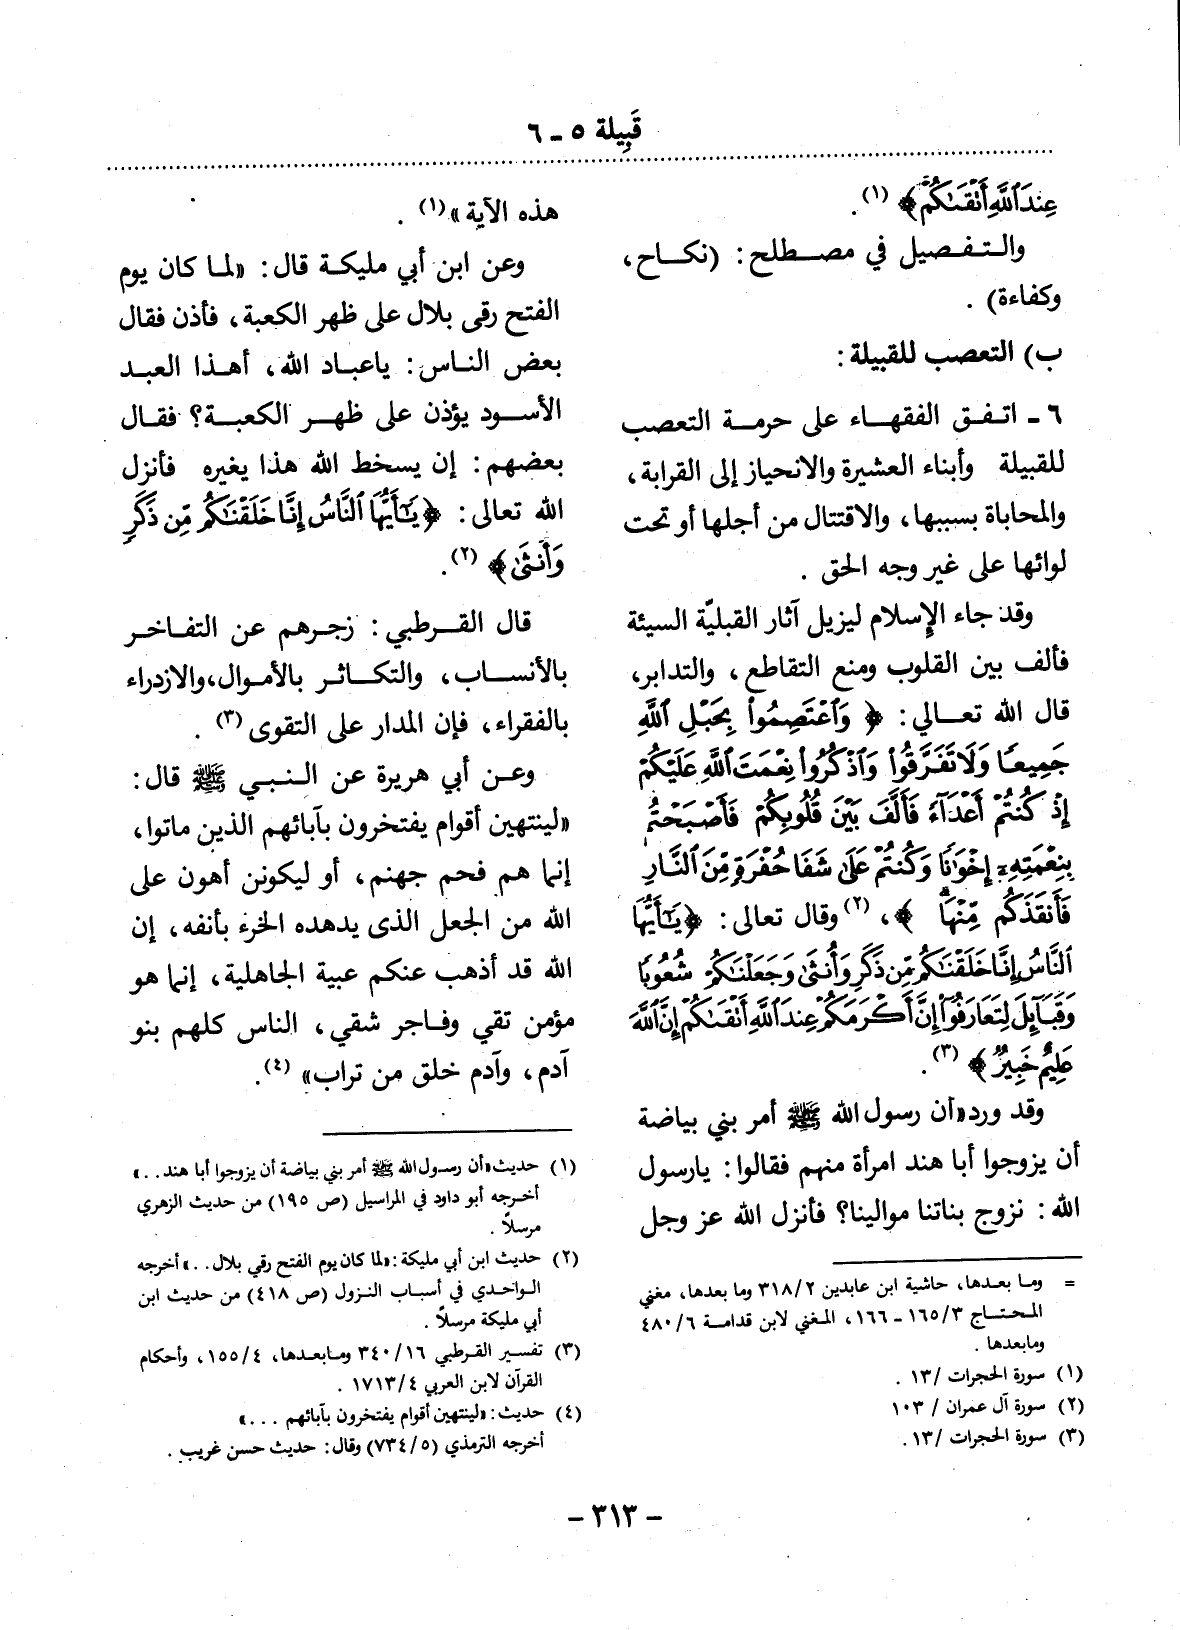 قَبِيلة ٥ ـ ٦
عِندَ ٱللَّهِ أَتْقَىٰكُمْ﴾ (١).
والتفصيل في مصطلح: (نكاح،
وكفاءة) .
ب) التعصب للقبيلة:
٦ ـ اتفق الفقهاء على حرمة التعصب
للقبيلة وأبناء العشيرة والانحياز إلى القرابة،
والمحاباة بسببها، والاقتتال من أجلها أو تحت
لوائها على غير وجه الحق .
وقد جاء الإِسلام ليزيل آثار القبليّة السيئة
فألف بين القلوب ومنع التقاطع، والتدابر،
قال الله تعالي: ﴿ وَٱعْتَصِمُوا۟ بِحَبْلِ ٱللَّهِ
جَمِيعًا وَلَا تَفَرَّقُوا۟ وَٱذْكُرُوا۟ نِعْمَتَ ٱللَّهِ عَلَيْكُمْ
إِذْ كُنتُمْ أَعْدَآءً فَأَلَّفَ بَيْنَ قُلُوبِكُمْ فَأَصْبَحْتُم
بِنِعْمَتِهِۦٓ إِخْوَٰنًا وَكُنتُمْ عَلَىٰ شَفَا حُفْرَةٍ مِّنَ ٱلنَّارِ
فَأَنقَذَكُم مِّنْهَا ۗ ﴾، (٢) وقال تعالى: ﴿يَـٰٓأَيُّهَا
ٱلنَّاسُ إِنَّا خَلَقْنَـٰكُم مِّن ذَكَرٍ وَأُنثَىٰ وَجَعَلْنَـٰكُمْ شُعُوبًا
وَقَبَآئِلَ لِتَعَارَفُوٓا۟ إِنَّ أَكْرَمَكُمْ عِندَ ٱللَّهِ أَتْقَىٰكُمْ إِنَّ ٱللَّهَ
عَلِيمٌ خَبِيرٌ﴾ (٣).
وقد ورد«أن رسول الله ﷺ أمر بني بياضة
أن يزوجوا أبا هند امرأة منهم فقالوا: يارسول
الله: نزوج بناتنا موالينا؟ فأنزل الله عز وجل
= وما بعدها، حاشية ابن عابدين ٣١٨/٢ وما بعدها، مغني
المحتاج ١٦٥/٣ ـ ١٦٦، المغني لابن قدامة ٤٨٠/٦
ومابعدها .
(١) سورة الحجرات /١٣ .
(٢) سورة آل عمران / ١٠٣
(٣) سورة الحجرات /١٣ .
هذه الآية»(١) .
وعن ابن أبي مليكة قال: «لما كان يوم
الفتح رقى بلال على ظهر الكعبة، فأذن فقال
بعض الناس: ياعباد الله، أهذا العبد
الأسود يؤذن على ظهر الكعبة؟ فقال
بعضهم: إن يسخط الله هذا يغيره فأنزل
الله تعالى: ﴿يَـٰٓأَيُّهَا ٱلنَّاسُ إِنَّا خَلَقْنَـٰكُم مِّن ذَكَرٍ
وَأُنثَىٰ﴾ (٢).
قال القرطبي: زجرهم عن التفاخر
بالأنساب، والتكاثر بالأموال،والازدراء
بالفقراء، فإن المدار على التقوى (٣) .
وعن أبي هريرة عن النبي ﷺ قال:
«لينتهين أقوام يفتخرون بآبائهم الذين ماتوا،
إنما هم فحم جهنم، أو ليكونن أهون على
الله من الجعل الذى يدهده الخرء بأنفه، إن
الله قد أذهب عنكم عبية الجاهلية، إنما هو
مؤمن تقي وفاجر شقي، الناس كلهم بنو
آدم، وآدم خلق من تراب» (٤).
(١) حديث«أن رسول الله ﷺ أمر بني بياضة أن يزوجوا أبا هند . . .»
أخرجه أبو داود في المراسيل (ص ١٩٥) من حديث الزهري
مرسلاً .
(٢) حديث ابن أبي مليكة: «لما كان يوم الفتح رقي بلال. . .» أخرجه
الواحدي في أسباب النزول (ص ٤١٨) من حديث ابن
أبي مليكة مرسلاً .
(٣) تفسير القرطبي ٣٤٠/١٦ ومابعدها، ١٥٥/٤، وأحكام
القرآن لابن العربي ١٧١٣/٤ .
(٤) حديث: «لينتهين أقوام يفتخرون بآبائهم . . .»
أخرجه الترمذي (٧٣٤/٥) وقال: حديث حسن غريب .
ـ ٣١٣ ـ